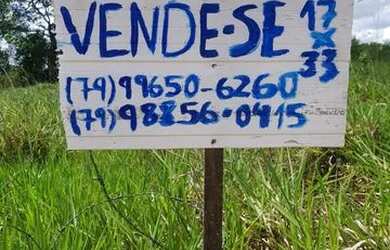 VENDE-SE 17 X 33
(79) 99650-6260
(79) 98856-0415